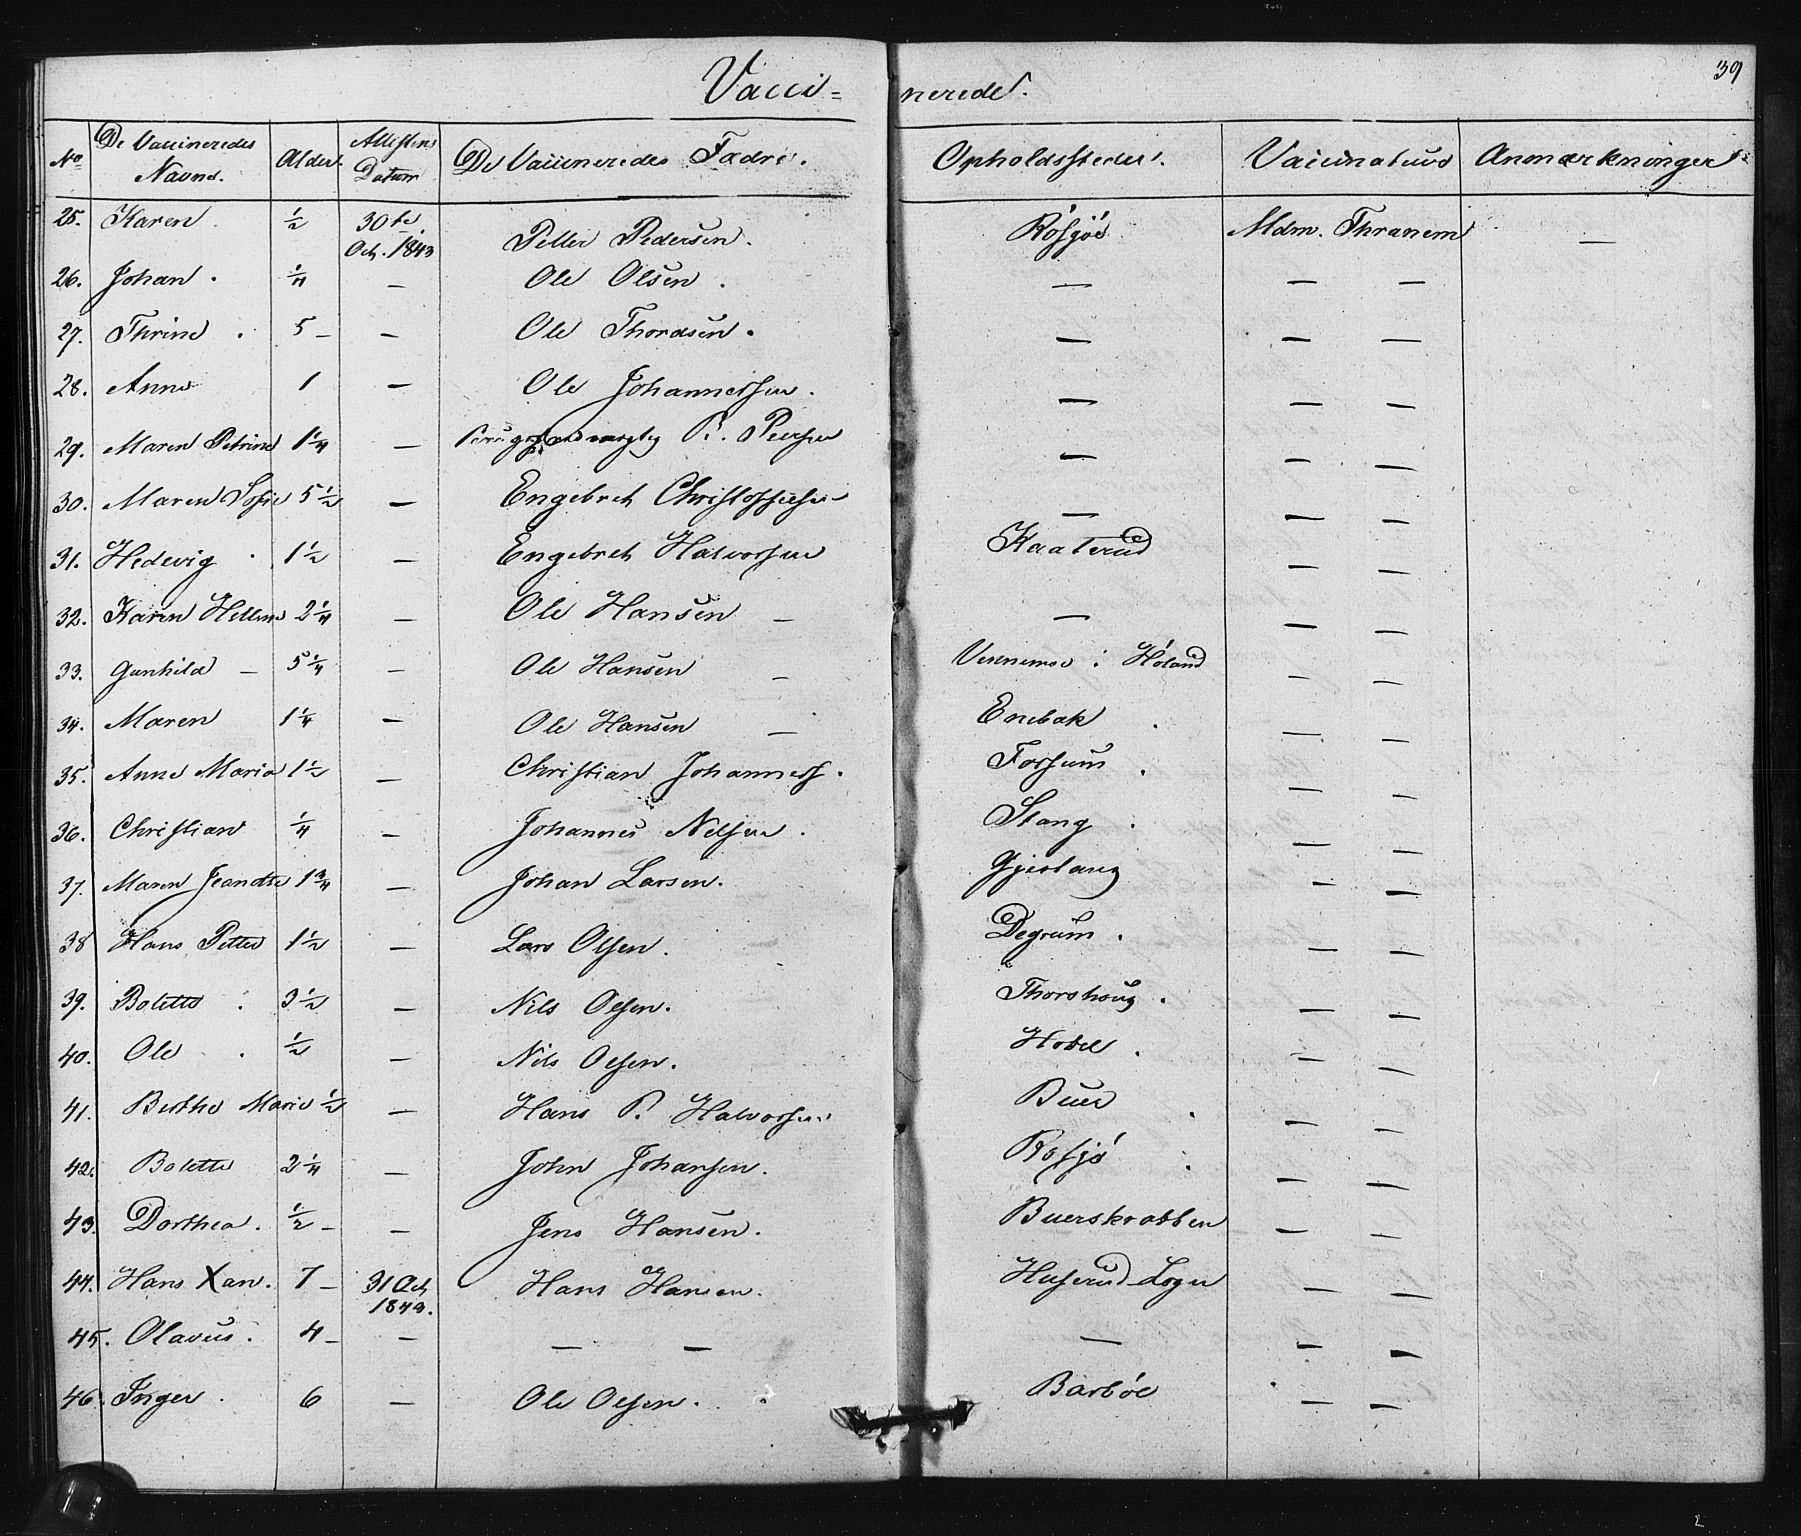 39
Vacci= nerede.
No De Vaccineredes Navne. Alder. Attestens Datum De Vaccineredes Fædre. Opholdssteder. Vaccinateurs Anmærkninger
25. Karen ½ 30te Oct. 1843 Petter Pedersen. Rosjøe Mdm. Thranem —
26. Johan. ¼ — Ole Olsen. — — —
27. Thrine. 5 — — Ole Thordsen. — — —
28. Anne 1 — Ole Johannessen. — — —
29. Maren Petrine 1¼ — P. Peersen — — —
30. Maren Sofie 5½ — Engebret Christoffersen — — —
31. Hedevig. 1½ — Engebret Halvorsen Kaaterud — —
32. Karen Hellene 2¼ — Ole Hansen — — — —
33. Gunhild — 5¼ — Ole Hansen — Vennemoe i Høland — —
34. Maren 1¼ — Ole Hansen — Enebak. — —
35. Anne Maria 1½ — Christian Johanness. Forsum. — —
36. Christian ¼ — Johannes Nilsen. Stang. — —
37. Maren Jeandtte 1¾ — Johan Larsen. Gjestang — —
38 Hans Petter 1½ — Lars Olsen. Degrum. — —
39. Bolette. 3½ — Nils Olsen. Thorshoug. — —
40. Ole. ½ — Nils Olsen. Hobel. — —
41. Berthe Marie ½ — Hans P. Halvorsen Buer. — —
42. Bolette 2¼ — John Johansen. Rosjø. — —
43. Dorthea. ½ — — Jens Hansen. Buerskrabben — —
44. Hans Xan. 7 — 31 Oct 1843. Hans Hansen. Huserud Loger — —
45. Olavus. 4 — — — — — — —
46. Inger. 6 — Ole Olsen. Barbøl — —